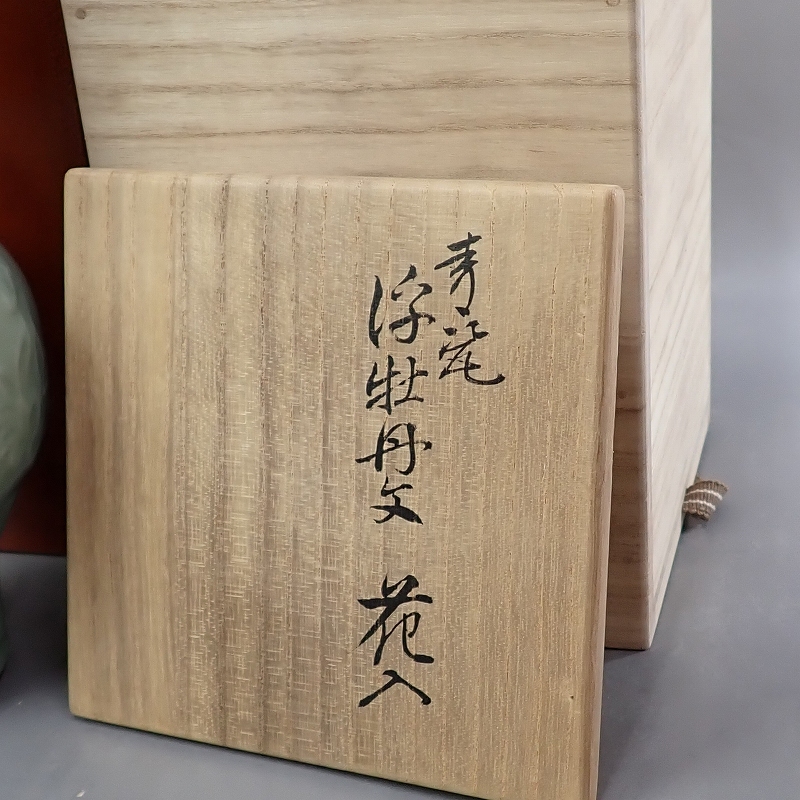 青瓷
浮牡丹文 花入